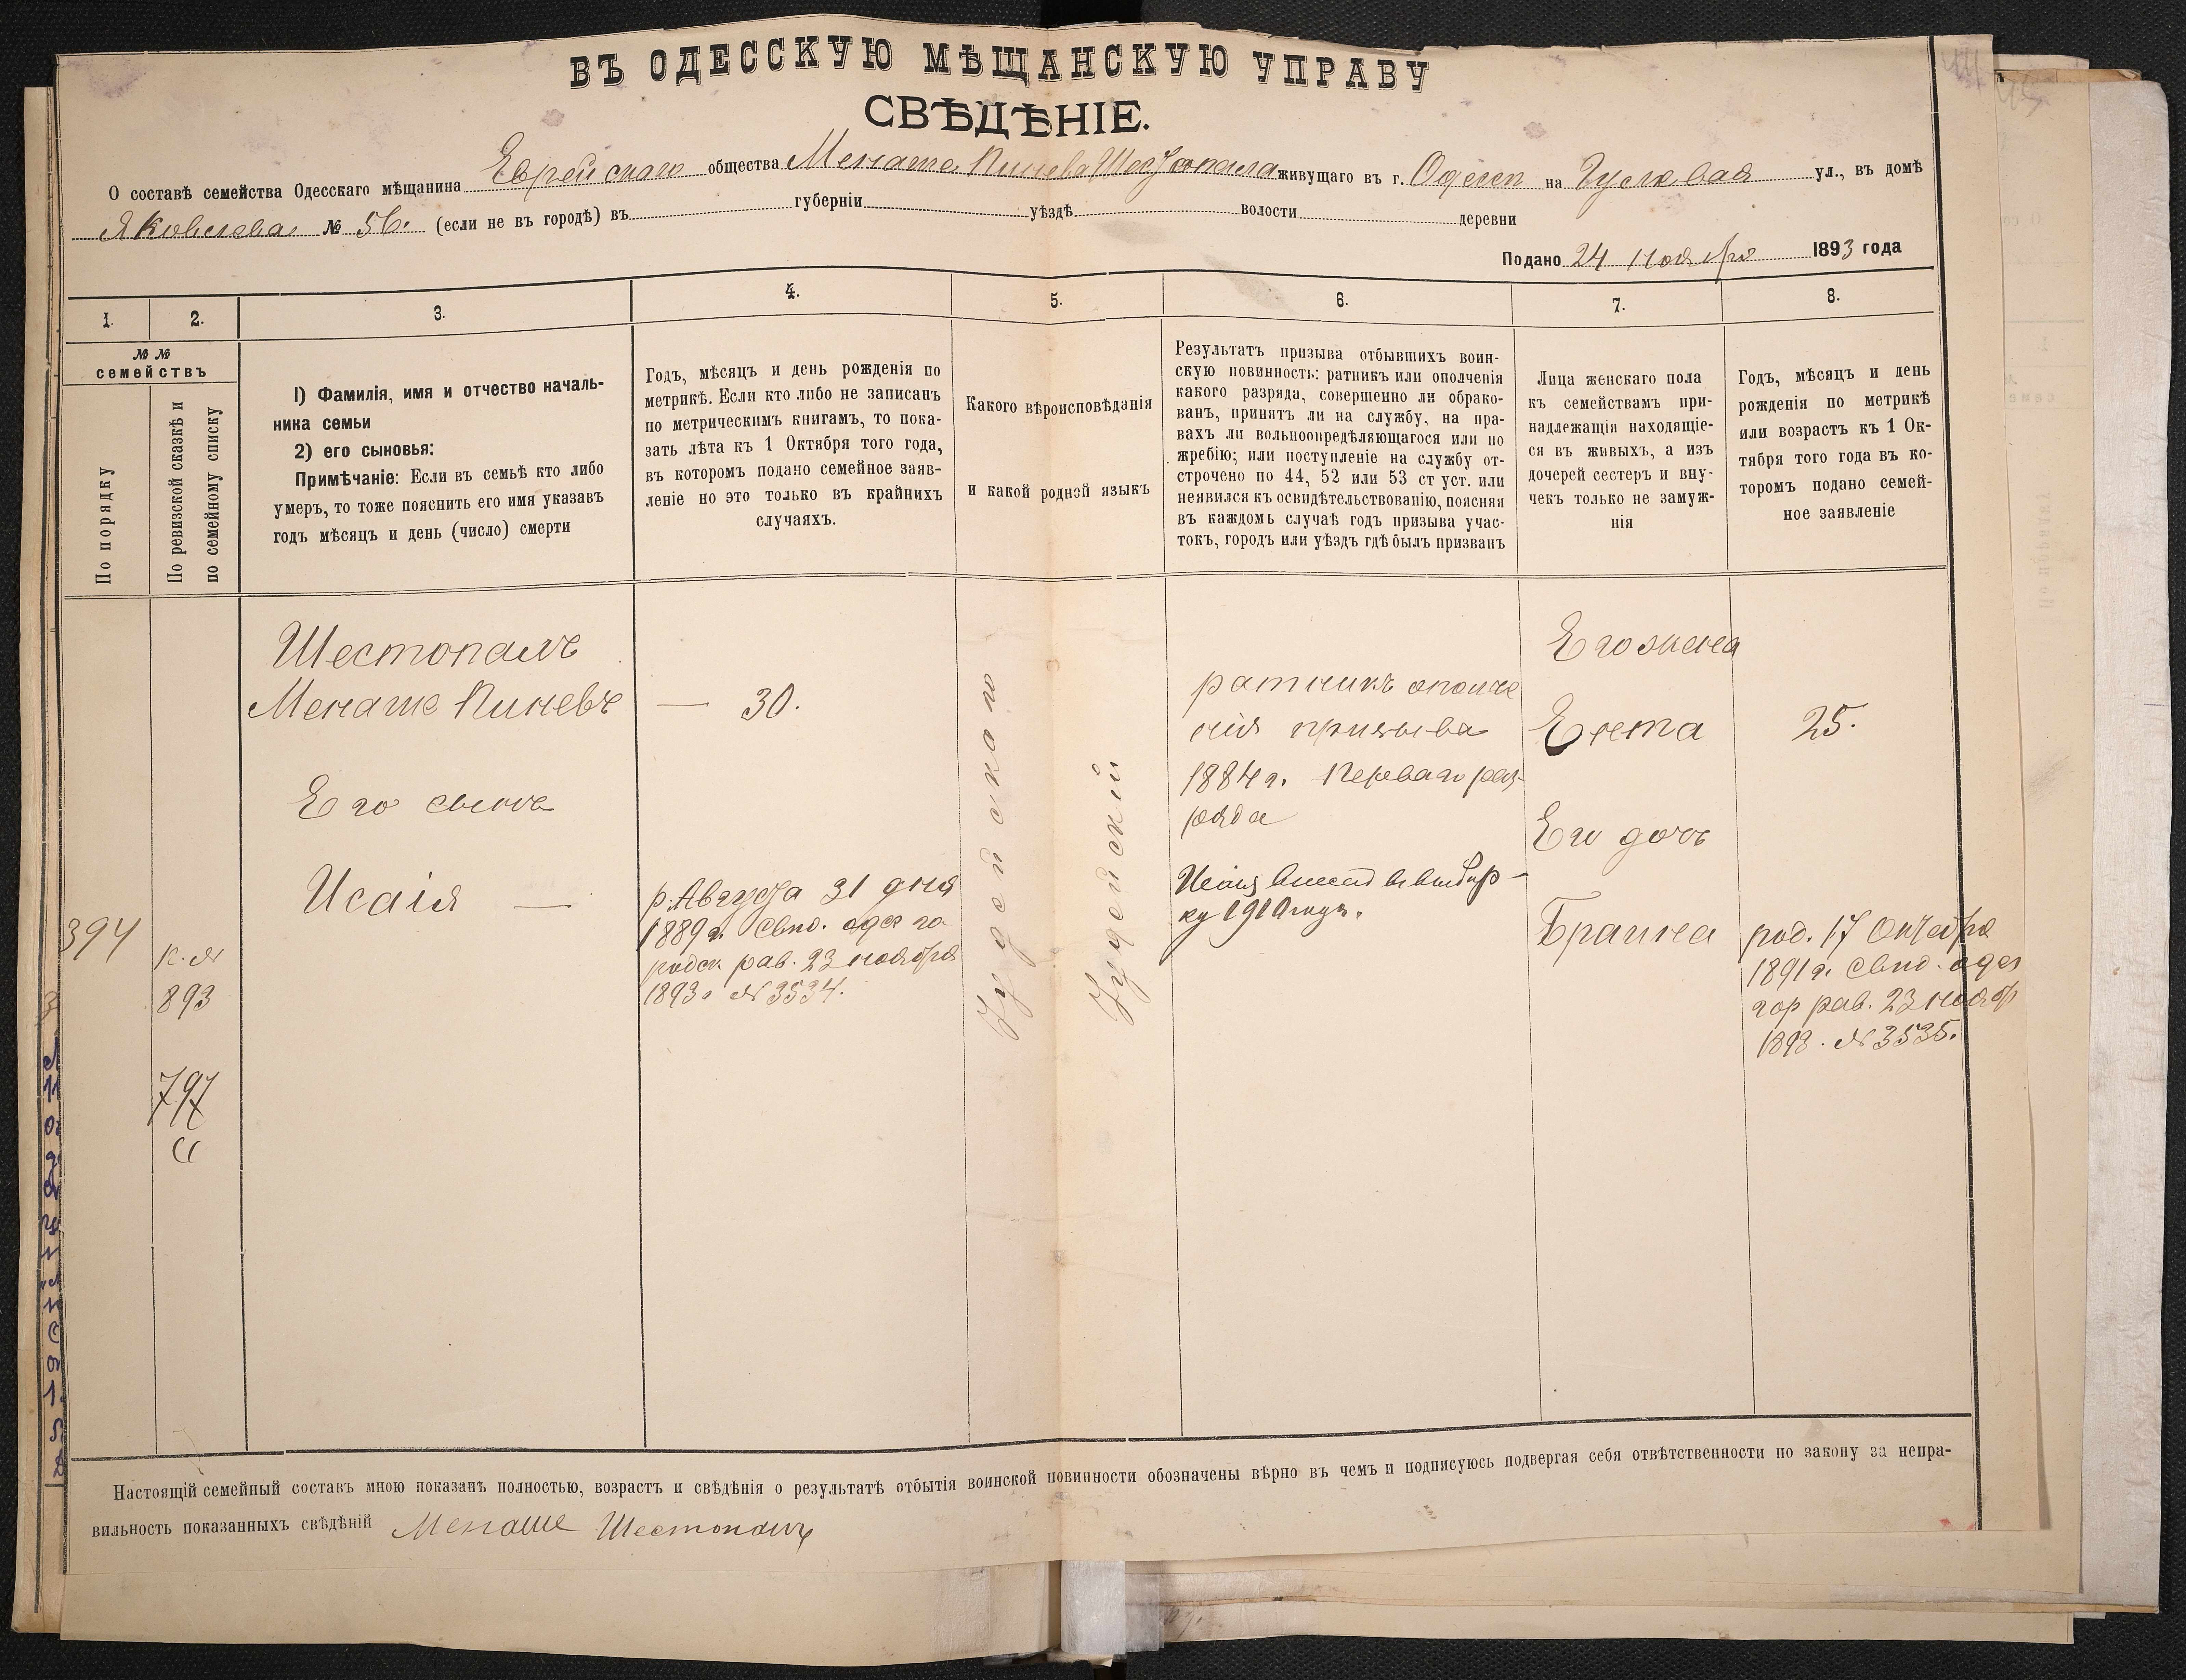 ВЪ ОДЕССКУЮ МѢЩАНСКУЮ УПРАВУ
СВѢДѢНІЕ.
О составѣ семейства Одесскаго мѣщанина Еврейскаго общества Менаше Пинева Шестопала живущаго въ г. Одессѣ на ул., въ домѣ
Яковлева № 56. (если не въ городѣ) въ губерніи уѣздѣ волости деревни
Подано 24 ноября 1893 года
1.
2.
3.
4.
5.
6.
7.
8.
№ №
семействъ
По порядку
По ревизской сказкѣ и
по семейному списку
1) Фамилія, имя и отчество началь-
ника семьи
2) его сыновья:
Примѣчаніе: Если въ семьѣ кто либо
умеръ, то тоже пояснить его имя указавъ
годъ мѣсяцъ и день (число) смерти
Годъ, мѣсяцъ и день рожденія по
метрикѣ. Если кто либо не записанъ
по метрическимъ книгамъ, то пока-
зать лѣта къ 1 Октября того года,
въ которомъ подано семейное заяв-
леніе но это только въ крайнихъ
случаяхъ.
Какого вѣроисповѣданія
и какой родной языкъ
Результатъ призыва отбывшихъ воин-
скую повинность: ратникъ или ополченія
какого разряда, совершенно ли обрако-
ванъ, принятъ ли на службу, на пра-
вахъ ли вольноопредѣляющагося или по
жребію; или поступленіе на службу от-
строчено по 44, 52 или 53 ст уст. или
неявился къ освидѣтельствованію, поясняя
въ каждомъ случаѣ годъ призыва учас-
токъ, городъ или уѣздъ гдѣ былъ призванъ
Лица женскаго пола
къ семействамъ при-
надлежащія находящіе-
ся въ живыхъ, а изъ
дочерей сестеръ и вну-
чекъ только не замуж-
нія
Годъ, мѣсяцъ и день
рожденія по метрикѣ
или возрастъ къ 1 Ок-
тября того года въ ко-
торомъ подано семей-
ное заявленіе
394
893
797
Шестопалъ
Менаше Пиневъ
Его сынъ
Исаія —
— 30.
р. Августа 31 дня
1889 г. Свид. одес го-
родск. рав. 23 ноября
1893 г № 3534.
Іудейскаго
Іудейский
ратникъ ополче
нія призыва
1884 г. Перваго раз-
ряда
ку 1910 года.
Его жена
Ента
Его дочь
Браина
25.
род. 17 Октября
1891 г. Свид. одес
гор рав. 23 нояб
1893. № 3535.
Настоящій семейный составъ мною показанъ полностью, возрастъ и свѣдѣнія о результатѣ отбытія воинской повинности обозначены вѣрно въ чемъ и подписуюсь подвергая себя отвѣтственности по закону за непра-
вильность показанныхъ свѣдѣній Менаше Шестопалъ